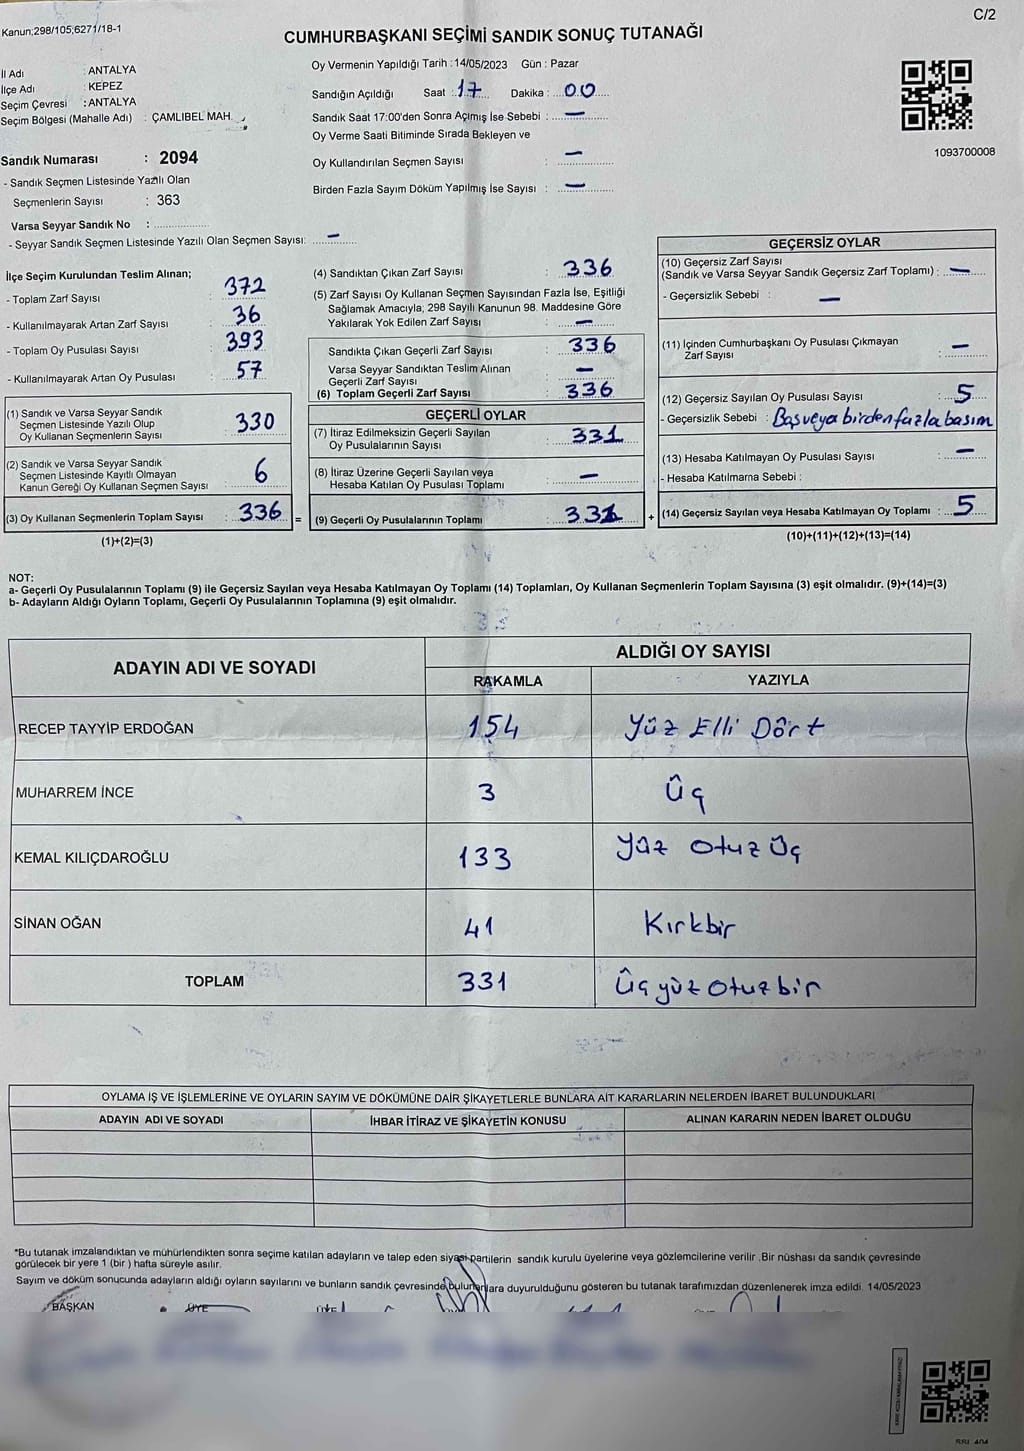 C/2
Kanun;298/105;6271/18-1
CUMHURBAŞKANI SEÇİMİ SANDIK SONUÇ TUTANAĞI
İl Adı : ANTALYA
İlçe Adı : KEPEZ
Seçim Çevresi : ANTALYA
Seçim Bölgesi (Mahalle Adı) : ÇAMLIBEL MAH.
Sandık Numarası : 2094
- Sandık Seçmen Listesinde Yazılı Olan
Seçmenlerin Sayısı : 363
Varsa Seyyar Sandık No : ..................
- Seyyar Sandık Seçmen Listesinde Yazılı Olan Seçmen Sayısı: –
Oy Vermenin Yapıldığı Tarih : 14/05/2023 Gün : Pazar
Sandığın Açıldığı Saat : 17 Dakika : 00
Sandık Saat 17:00'den Sonra Açımış İse Sebebi : –
Oy Verme Saati Bitiminde Sırada Bekleyen ve
Oy Kullandırılan Seçmen Sayısı : –
Birden Fazla Sayım Döküm Yapılmış İse Sayısı : –
1093700008
İlçe Seçim Kurulundan Teslim Alınan;
- Toplam Zarf Sayısı : 372
- Kullanılmayarak Artan Zarf Sayısı : 36
- Toplam Oy Pusulası Sayısı : 393
- Kullanılmayarak Artan Oy Pusulası : 57
(1) Sandık ve Varsa Seyyar Sandık
Seçmen Listesinde Yazılı Olup
Oy Kullanan Seçmenlerin Sayısı : 330
(2) Sandık ve Varsa Seyyar Sandık
Seçmen Listesinde Kayıtlı Olmayan
Kanun Gereği Oy Kullanan Seçmen Sayısı : 6
(3) Oy Kullanan Seçmenlerin Toplam Sayısı : 336 =
(1)+(2)=(3)
(4) Sandıktan Çıkan Zarf Sayısı : 336
(5) Zarf Sayısı Oy Kullanan Seçmen Sayısından Fazla İse, Eşitliği
Sağlamak Amacıyla, 298 Sayılı Kanunun 98. Maddesine Göre
Yakılarak Yok Edilen Zarf Sayısı : –
Sandıkta Çıkan Geçerli Zarf Sayısı : 336
Varsa Seyyar Sandıktan Teslim Alınan
Geçerli Zarf Sayısı : –
(6) Toplam Geçerli Zarf Sayısı : 336
GEÇERLİ OYLAR
(7) İtiraz Edilmeksizin Geçerli Sayılan
Oy Pusulalarının Sayısı : 331
(8) İtiraz Üzerine Geçerli Sayılan veya
Hesaba Katılan Oy Pusulası Toplamı : –
(9) Geçerli Oy Pusulalarının Toplamı : 331 +
GEÇERSİZ OYLAR
(10) Geçersiz Zarf Sayısı
(Sandık ve Varsa Seyyar Sandık Geçersiz Zarf Toplamı) : –
- Geçersizlik Sebebi : –
(11) İçinden Cumhurbaşkanı Oy Pusulası Çıkmayan
Zarf Sayısı : –
(12) Geçersiz Sayılan Oy Pusulası Sayısı : 5
- Geçersizlik Sebebi : Boş veya birden fazla basım
(13) Hesaba Katılmayan Oy Pusulası Sayısı : –
- Hesaba Katılmama Sebebi :
(14) Geçersiz Sayılan veya Hesaba Katılmayan Oy Toplamı : 5
(10)+(11)+(12)+(13)=(14)
NOT:
a- Geçerli Oy Pusulalarının Toplamı (9) ile Geçersiz Sayılan veya Hesaba Katılmayan Oy Toplamı (14) Toplamları, Oy Kullanan Seçmenlerin Toplam Sayısına (3) eşit olmalıdır. (9)+(14)=(3)
b- Adayların Aldığı Oyların Toplamı, Geçerli Oy Pusulalarının Toplamına (9) eşit olmalıdır.
ADAYIN ADI VE SOYADI ALDIĞI OY SAYISI
RAKAMLA YAZIYLA
RECEP TAYYİP ERDOĞAN 154 Yüz Elli Dört
MUHARREM İNCE 3 Üç
KEMAL KILIÇDAROĞLU 133 Yüz Otuz Üç
SİNAN OĞAN 41 Kırkbir
TOPLAM 331 Üçyüz Otuzbir
OYLAMA İŞ VE İŞLEMLERİNE VE OYLARIN SAYIM VE DÖKÜMÜNE DAİR ŞİKAYETLERLE BUNLARA AİT KARARLARIN NELERDEN İBARET BULUNDUKLARI
ADAYIN ADI VE SOYADI İHBAR İTİRAZ VE ŞİKAYETİN KONUSU ALINAN KARARIN NEDEN İBARET OLDUĞU
*Bu tutanak imzalandıktan ve mühürlendikten sonra seçime katılan adayların ve talep eden siyasi partilerin sandık kurulu üyelerine veya gözlemcilerine verilir .Bir nüshası da sandık çevresinde
görülecek bir yere 1 (bir) hafta süreyle asılır.
Sayım ve döküm sonucunda adayların aldığı oyların sayılarını ve bunların sandık çevresinde bulunanlara duyurulduğunu gösteren bu tutanak tarafımızdan düzenlenerek imza edildi. 14/05/2023
BAŞKAN ÜYE ÜYE